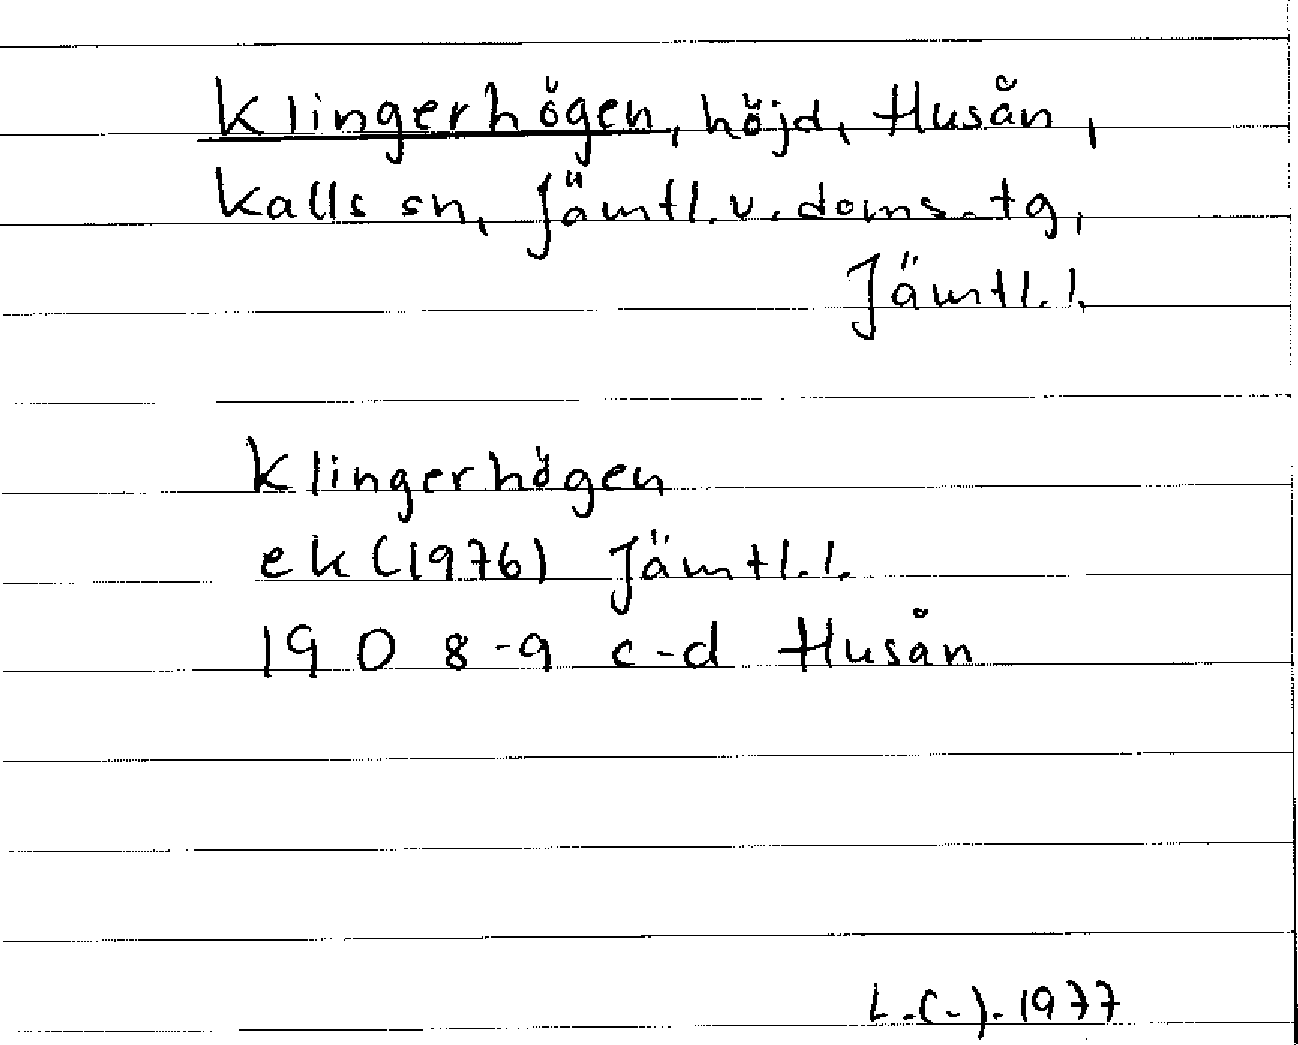 Klingerhögen, höjd, Husån,
Kalls sn, Jämtl. v. doms. tg,
Jämtl. l.
Klingerhögen
ek (1976) Jämtl. l.
19 D 8-9 c-d Husån
L.C.J. 1977